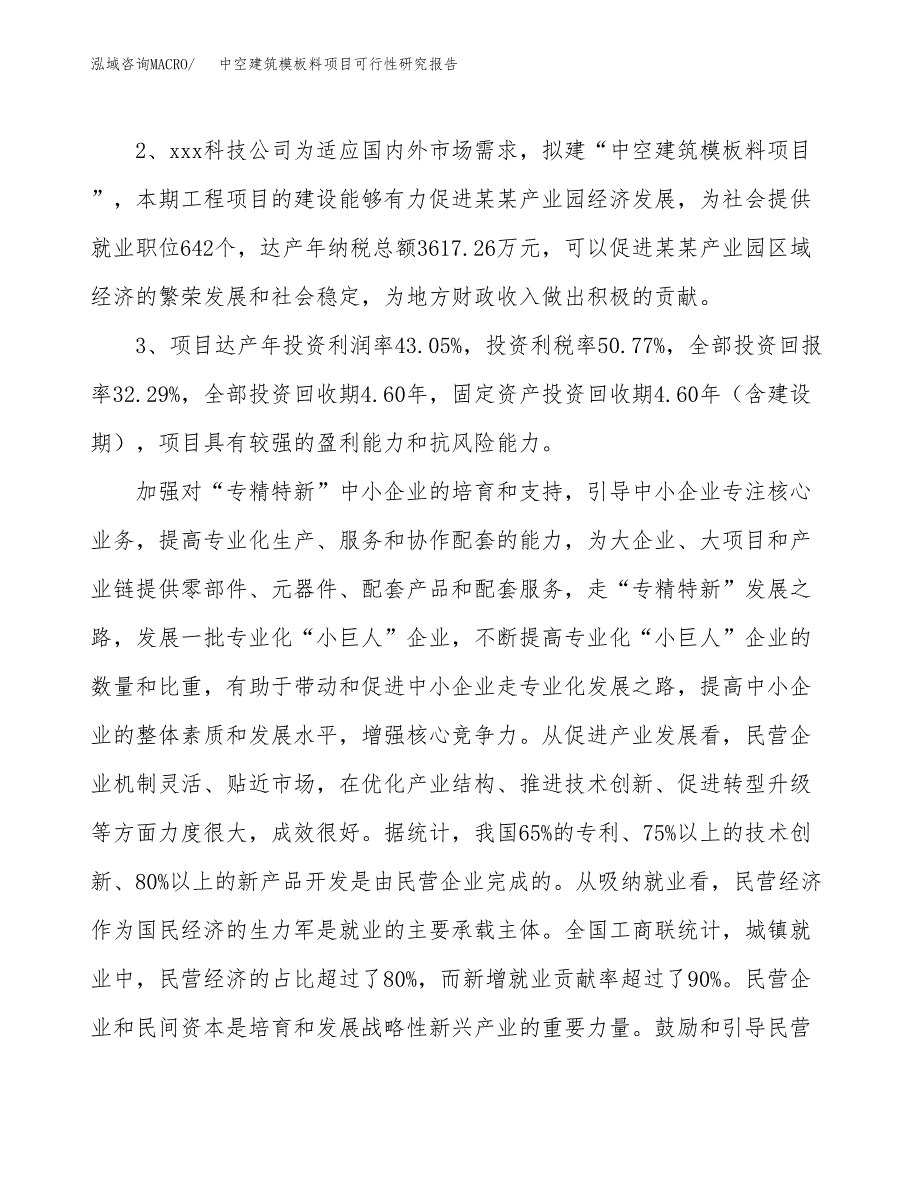 泓域咨询MACRO/ 中空建筑模板料项目可行性研究报告
2、xxx科技公司为适应国内外市场需求，拟建“中空建筑模板料项目
”，本期工程项目的建设能够有力促进某某产业园经济发展，为社会提供
就业职位642个，达产年纳税总额3617.26万元，可以促进某某产业园区域
经济的繁荣发展和社会稳定，为地方财政收入做出积极的贡献。
3、项目达产年投资利润率43.05%，投资利税率50.77%，全部投资回报
率32.29%，全部投资回收期4.60年，固定资产投资回收期4.60年（含建设
期），项目具有较强的盈利能力和抗风险能力。
加强对“专精特新”中小企业的培育和支持，引导中小企业专注核心
业务，提高专业化生产、服务和协作配套的能力，为大企业、大项目和产
业链提供零部件、元器件、配套产品和配套服务，走“专精特新”发展之
路，发展一批专业化“小巨人”企业，不断提高专业化“小巨人”企业的
数量和比重，有助于带动和促进中小企业走专业化发展之路，提高中小企
业的整体素质和发展水平，增强核心竞争力。从促进产业发展看，民营企
业机制灵活、贴近市场，在优化产业结构、推进技术创新、促进转型升级
等方面力度很大，成效很好。据统计，我国65%的专利、75%以上的技术创
新、80%以上的新产品开发是由民营企业完成的。从吸纳就业看，民营经济
作为国民经济的生力军是就业的主要承载主体。全国工商联统计，城镇就
业中，民营经济的占比超过了80%，而新增就业贡献率超过了90%。民营企
业和民间资本是培育和发展战略性新兴产业的重要力量。鼓励和引导民营